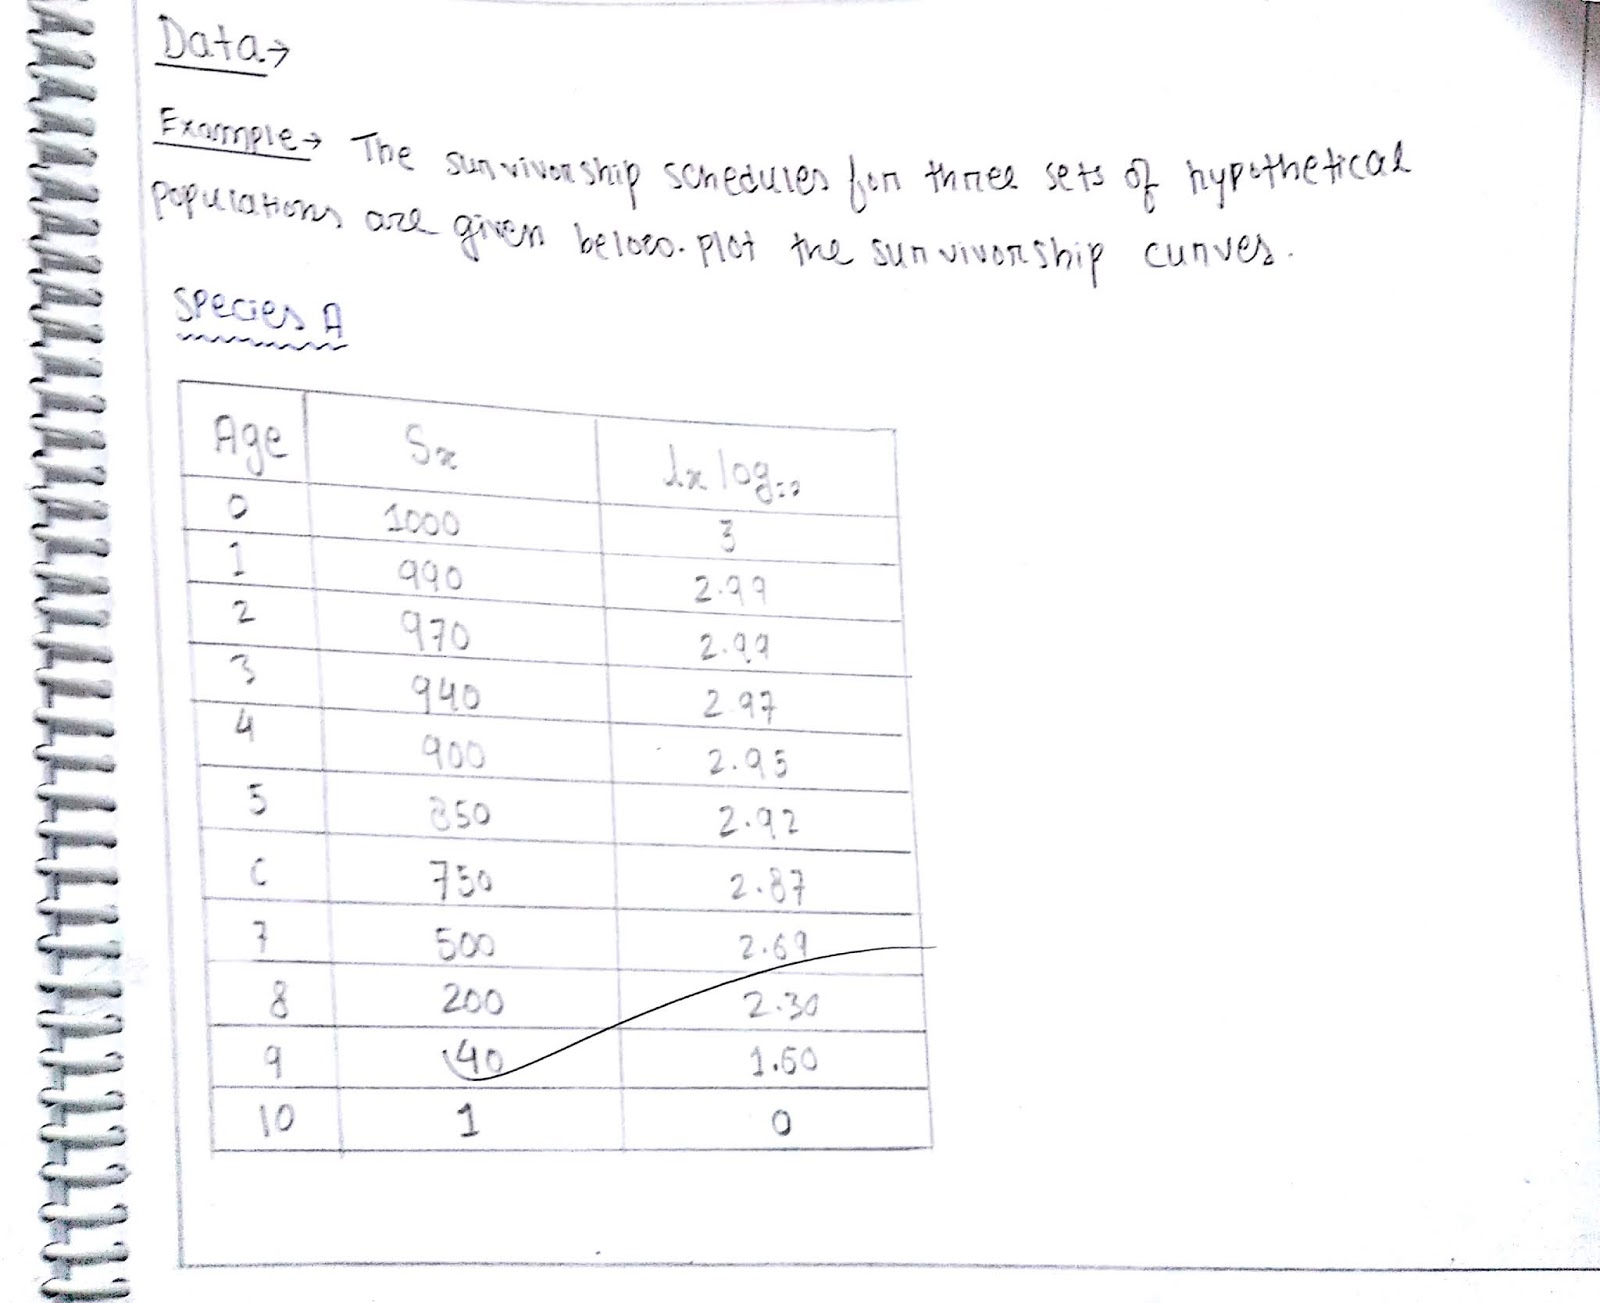 Data→
Example→ The survivorship schedules for three sets of hypothetical
populations are given below. Plot the survivorship curves.
Species A
Age Sx lx log10
0 1000 3
1 990 2.99
2 970 2.99
3 940 2.97
4 900 2.95
5 850 2.92
6 750 2.87
7 500 2.69
8 200 2.30
9 40 1.60
10 1 0